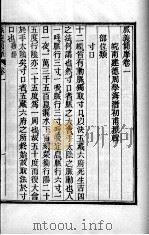 脈義簡摩卷一
皖南建德周學海澂之甫輯
部位類
寸口
十二經皆有動脈獨取寸口以決五藏六府死生吉凶
之法何謂也然寸口者脈之大會手太陰之動脈也人
一呼脈行三寸一吸脈行三寸呼吸定息脈行六寸人一
日一夜一萬三千五百息漏水下百刻榮衛行陽二十
五度行陰亦二十五度爲一周也故五十度而復大會
於手太陰矣寸口者五藏六府之所終始故取法於寸
口也